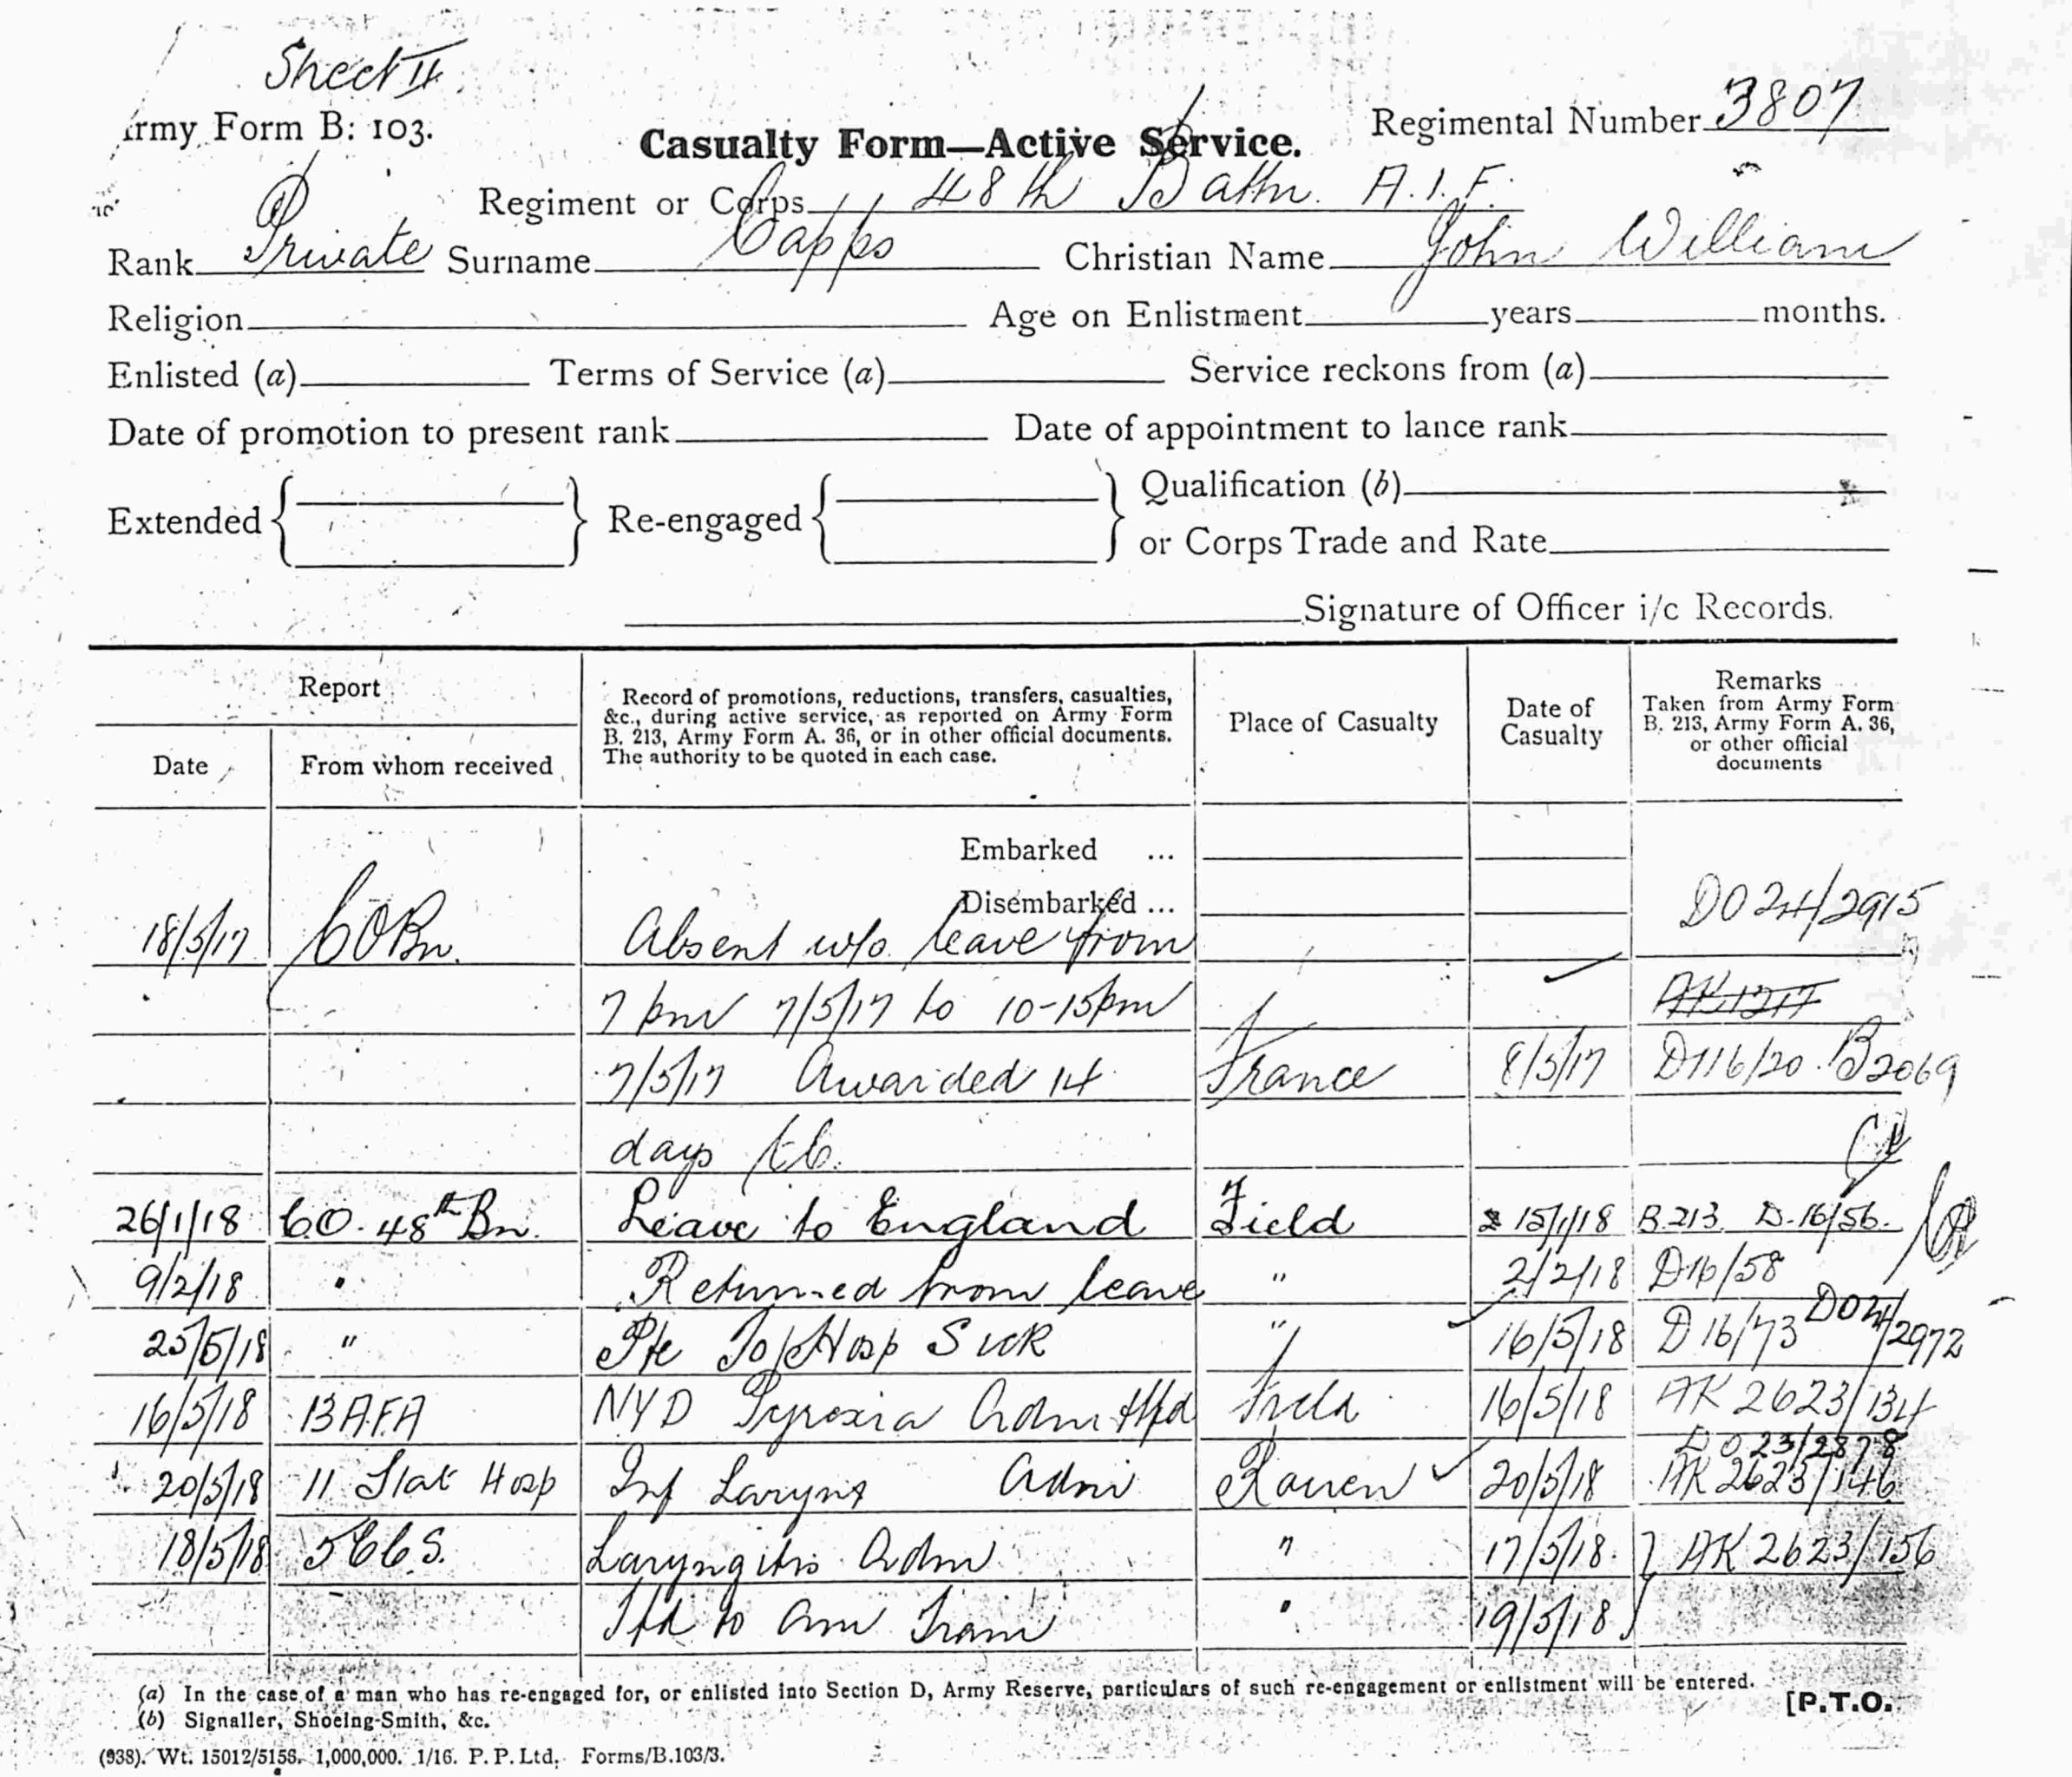 Sheet II
Army Form B: 103.
Casualty Form—Active Service.
Regimental Number 3807
Regiment or Corps 48th Battn. A.I.F.
Rank Private Surname Capps Christian Name John William
Religion Age on Enlistment years months.
Enlisted (a) Terms of Service (a) Service reckons from (a)
Date of promotion to present rank Date of appointment to lance rank
Extended Re-engaged Qualification (b)
or Corps Trade and Rate
Signature of Officer i/c Records.
Report
Date From whom received
Record of promotions, reductions, transfers, casualties,
&c., during active service, as reported on Army Form
B. 213, Army Form A. 36, or in other official documents.
The authority to be quoted in each case.
Place of Casualty
Date of
Casualty
Remarks
Taken from Army Form
B. 213, Army Form A. 36,
or other official
documents
Embarked ...
Disembarked ...
DO 24/2915
18/5/17 CO Bn. Absent w/o leave from
7 pm 7/5/17 to 10-15pm
7/5/17 Awarded 14 France 8/5/17 D116/20 B2069
days
26/1/18 C.O. 48th Bn. Leave to England Field 15/1/18 B.213 D.16/56.
9/2/18 " Returned from leave " 2/2/18 D16/58
25/5/18 " Pte To Hosp Sick " 16/5/18 D16/73 DO 24/2972
16/5/18 13 AFA NYD Pyrexia Adm Field 16/5/18 AK 2623/134
DO 23/2878
20/5/18 11 Stat Hosp Inf Larynx Adm Rouen 20/5/18 AK 2623/146
18/5/18 5 CCS. Laryngitis Adm " 17/5/18 AK 2623/156
Tfd to Am Train " 19/5/18
(a) In the case of a man who has re-engaged for, or enlisted into Section D, Army Reserve, particulars of such re-engagement or enlistment will be entered.
(b) Signaller, Shoeing-Smith, &c.
[P.T.O.
(938). Wt. 15012/5158. 1,000,000. 1/16. P.P.Ltd. Forms/B.103/3.